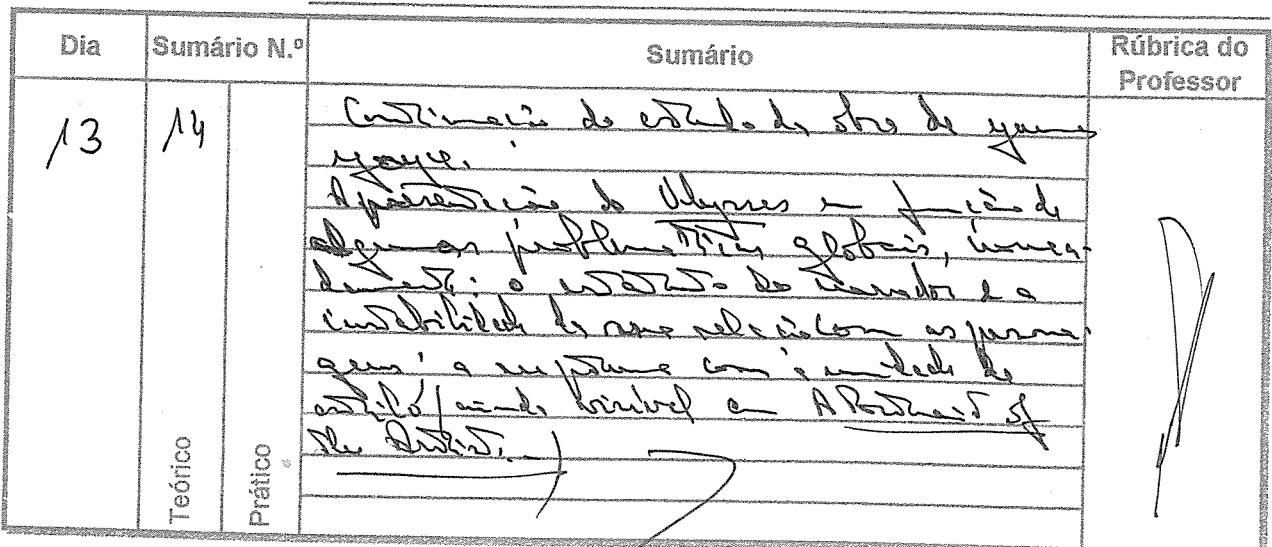 Dia Sumário N.º Sumário Rúbrica do Professor
13 14
Continuação do estudo da obra de James
Joyce.
Apresentação do Ulysses em função de
algumas problemáticas globais, nomea-
damente: o estatuto do narrador e a
instabilidade da sua relação com as persona-
gens; a ruptura com a unidade de
estilo (ainda visível em A Portrait of
the Artist...)
Teórico
Prático